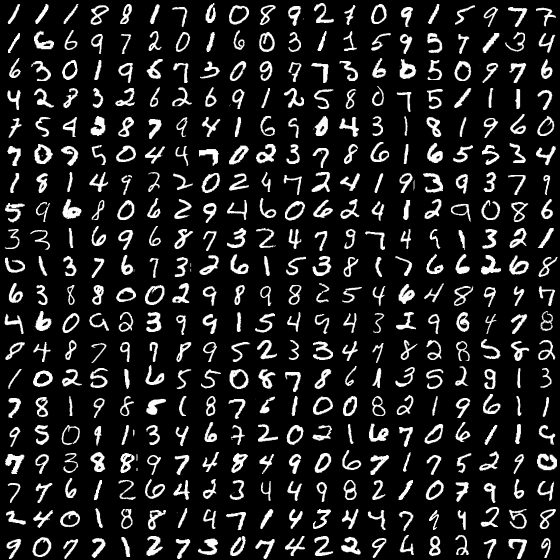 1 1 1 8 8 1 7 0 0 8 9 2 7 0 9 1 5 9 7 7
1 6 6 9 7 2 0 1 6 0 3 1 1 5 9 5 7 1 3 4
6 3 0 1 9 6 7 3 0 9 9 7 3 6 6 5 0 9 7 6
4 2 8 3 2 6 2 6 9 1 2 5 8 0 7 5 1 1 1 7
7 5 4 3 8 7 9 4 1 6 9 0 4 3 1 8 1 9 6 0
7 0 9 5 0 4 4 7 0 2 3 7 8 6 1 6 5 5 3 4
1 8 1 4 9 2 2 0 2 4 7 2 4 1 9 3 9 3 7 9
5 9 6 8 0 6 2 9 4 6 0 6 2 4 1 2 9 0 8 6
3 3 1 6 9 6 8 7 3 2 4 7 9 7 4 9 1 3 2 1
6 1 3 7 6 7 3 2 6 1 5 3 8 1 7 6 6 2 6 8
6 3 8 8 0 0 2 9 8 9 8 2 5 4 6 4 8 9 9 7
4 6 0 9 2 3 9 9 1 5 4 9 4 3 1 9 6 4 7 8
8 4 8 7 9 7 8 9 5 2 3 3 4 7 8 2 8 5 8 2
1 0 2 5 1 6 5 5 0 8 7 8 6 1 3 5 2 9 1 3
7 8 1 9 8 5 1 8 7 5 1 0 0 8 2 1 9 6 1 1
9 5 0 9 1 3 4 6 7 2 0 2 1 6 7 0 6 1 1 5
7 9 3 8 8 9 7 4 8 4 9 0 6 7 1 7 5 2 9 0
7 7 6 1 2 6 4 2 3 4 4 9 8 2 1 0 7 9 6 4
2 4 0 1 8 8 1 4 7 1 4 3 4 4 7 9 4 2 5 8
9 0 7 7 1 2 7 3 0 7 4 2 2 9 4 8 2 7 7 9